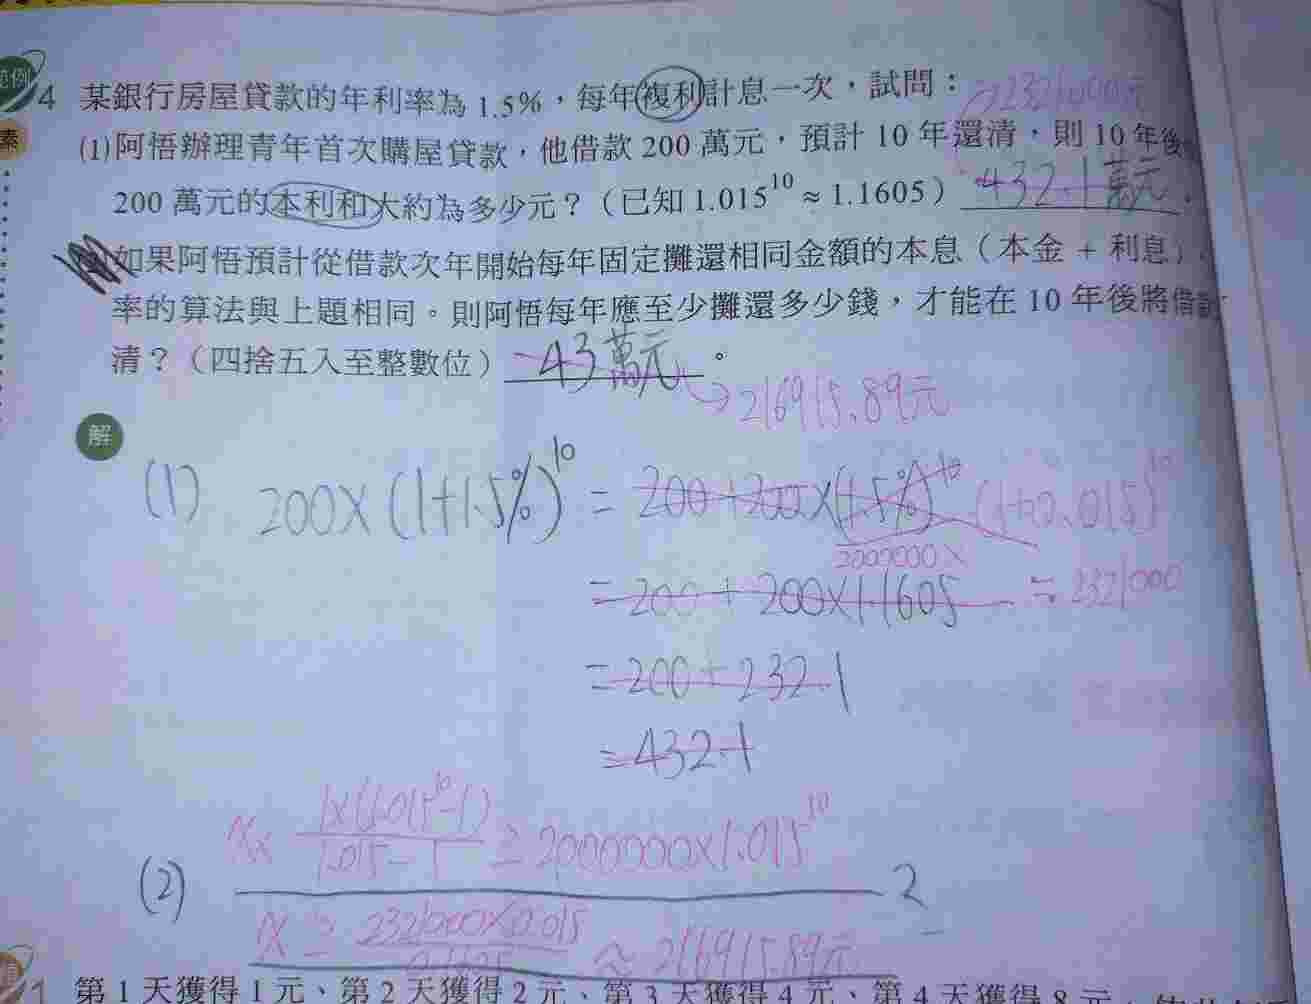 範例
4 某銀行房屋貸款的年利率為 1.5%，每年複利計息一次，試問： →2321000元
素
(1)阿悟辦理青年首次購屋貸款，他借款 200 萬元，預計 10 年還清，則 10 年後
200 萬元的本利和大約為多少元？（已知 1.015^10 ≈ 1.1605） 432.1萬元 .
如果阿悟預計從借款次年開始每年固定攤還相同金額的本息（本金 + 利息）
率的算法與上題相同。則阿悟每年應至少攤還多少錢，才能在 10 年後將借款
清？（四捨五入至整數位） 43萬元 。
→216915.89元
解
(1) 200×(1+1.5%)^10 = 200+200×(1.5%)^10 (1+0.015)^10
2000000×
= 200 + 200×1.1605 ≒ 2321000
= 200 + 232.1
= 432.1
(2) x× 1×(1.015^10-1) / 1.015-1 ≥ 2000000×1.015^10
2
x ≥ 2321000×0.015 ≈ 216915.89元
1 第 1 天獲得 1 元、第 2 天獲得 2 元、第 3 天獲得 4 元、第 4 天獲得 8 元